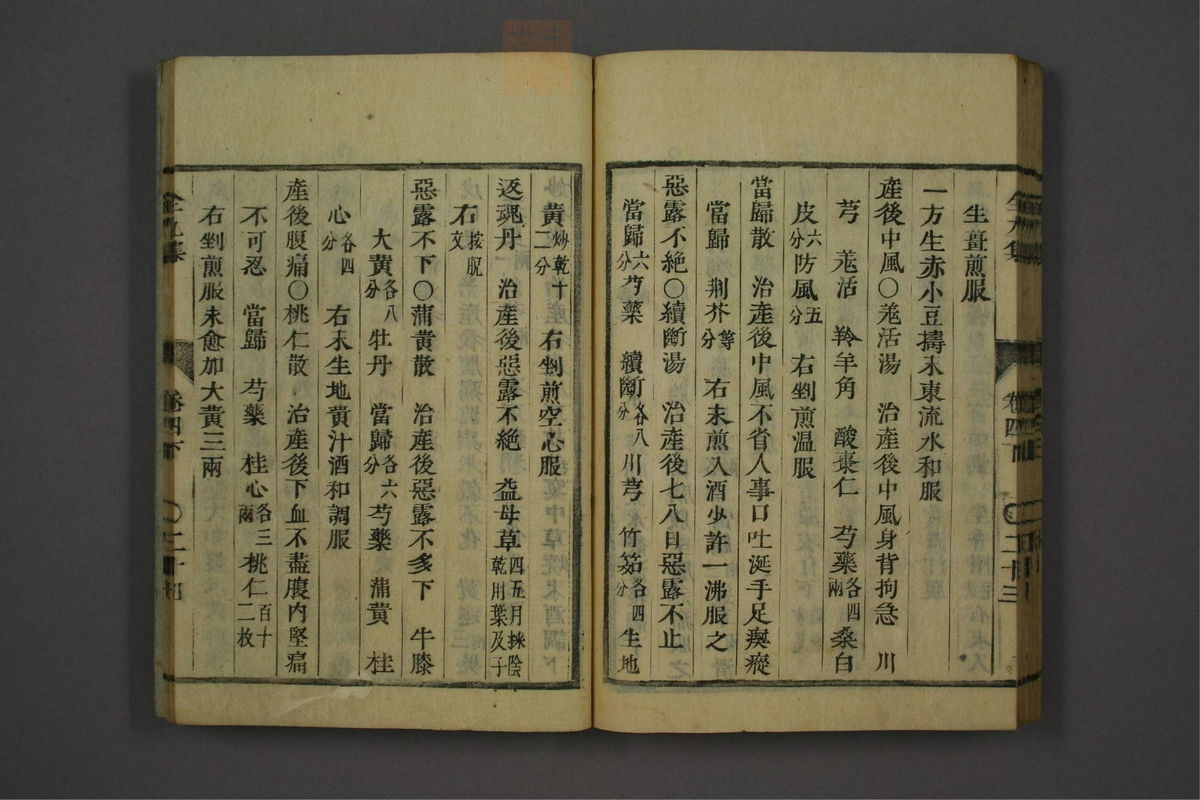 生薑煎服
一方生赤小豆擣末東流水和服
產後中風〇羗活湯　治產後中風身背拘急　川
芎　羗活　羚羊角　酸棗仁　芍藥各四兩桑白
皮六分防風五分　右剉煎温服
當歸散　治產後中風不省人事口吐涎手足瘈瘲
當歸　荆芥等分　右末煎入酒少許一沸服之
惡露不絶〇續斷湯　治產後七八日惡露不止
當歸六分芍藥　續斷各八分川芎　竹筎各四分生地
黃炒乾十二分　右剉煎空心服
返魂丹　治產後惡露不絶　益母草四五月採陰乾用葉及子
右按脫文
惡露不下〇蒲黃散　治產後惡露不多下　牛膝
大黃各八分　牡丹　當歸各六分芍藥　蒲黃　桂
心各四分　右末生地黃汁酒和調服
產後腹痛〇桃仁散　治產後下血不盡腹內堅痛
不可忍　當歸　芍藥　桂心各三兩桃仁百十二枚
右剉煎服未愈加大黃三兩
卷四
二十三
卷四下
〇二十四